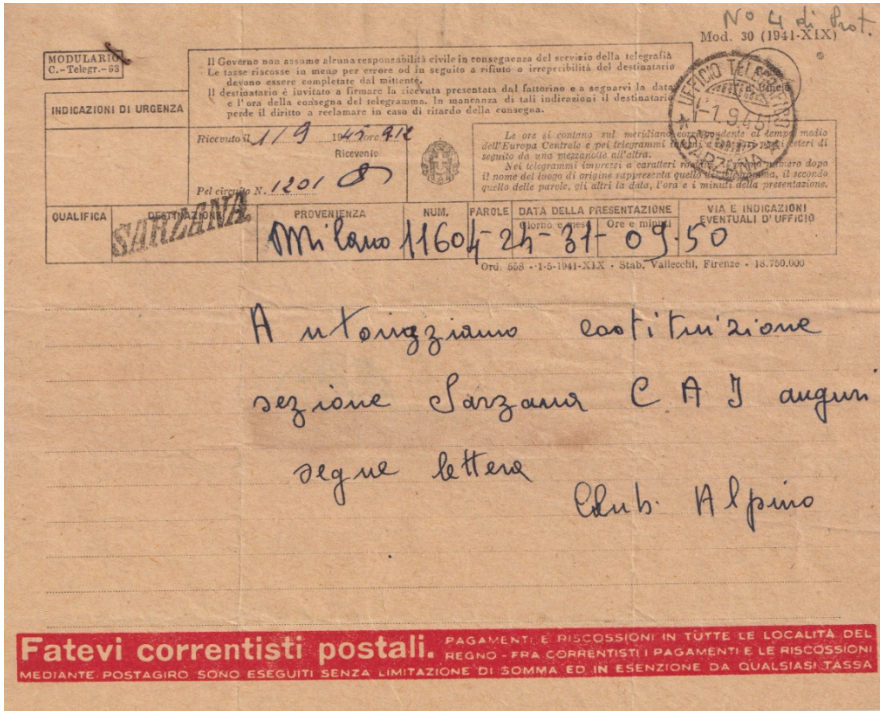 Nº 4 di Prot.
Mod. 30 (1941-XIX)
MODULARIO
C.-Telegr.-63
INDICAZIONI DI URGENZA
Il Governo non assume alcuna responsabilità civile in conseguenza del servizio della telegrafia
Le tasse riscosse in meno per errore od in seguito a rifiuto o irreperibilità del destinatario
devono essere completate dal mittente.
Il destinatario è invitato a firmare la ricevuta presentata dal fattorino e a segnarvi la data
e l'ora della consegna del telegramma. In mancanza di tali indicazioni il destinatario
perde il diritto a reclamare in caso di ritardo della consegna.
UFFICIO TELEGRAFICO
1.9.45
SARZANA
Ricevuto il 1/9 1945 ore
Ricevente
Pel circuito N. 1201
Le ore si contano sul meridiano corrispondente al tempo medio
dell'Europa Centrale e pei telegrammi
seguito da una mezzanotte all'altra.
Nei telegrammi impressi a caratteri numero dopo
il nome del luogo di origine rappresenta quello del telegramma, il secondo
quello delle parole, gli altri la data, l'ora e i minuti della presentazione.
QUALIFICA DESTINAZIONE PROVENIENZA NUM. PAROLE DATA DELLA PRESENTAZIONE VIA E INDICAZIONI
Giorno e mese Ore e minuti EVENTUALI D'UFFICIO
SARZANA Milano 11604-24-31-09.50
Ord. 558 - 1-5-1941-XIX - Stab. Vallecchi, Firenze - 18.750.000
Autorizziamo costituizione
sezione Sarzana C A I auguri
segue lettera
Club. Alpino
Fatevi correntisti postali. PAGAMENTI E RISCOSSIONI IN TUTTE LE LOCALITÀ DEL
REGNO - FRA CORRENTISTI I PAGAMENTI E LE RISCOSSIONI
MEDIANTE POSTAGIRO SONO ESEGUITI SENZA LIMITAZIONE DI SOMMA ED IN ESENZIONE DA QUALSIASI TASSA